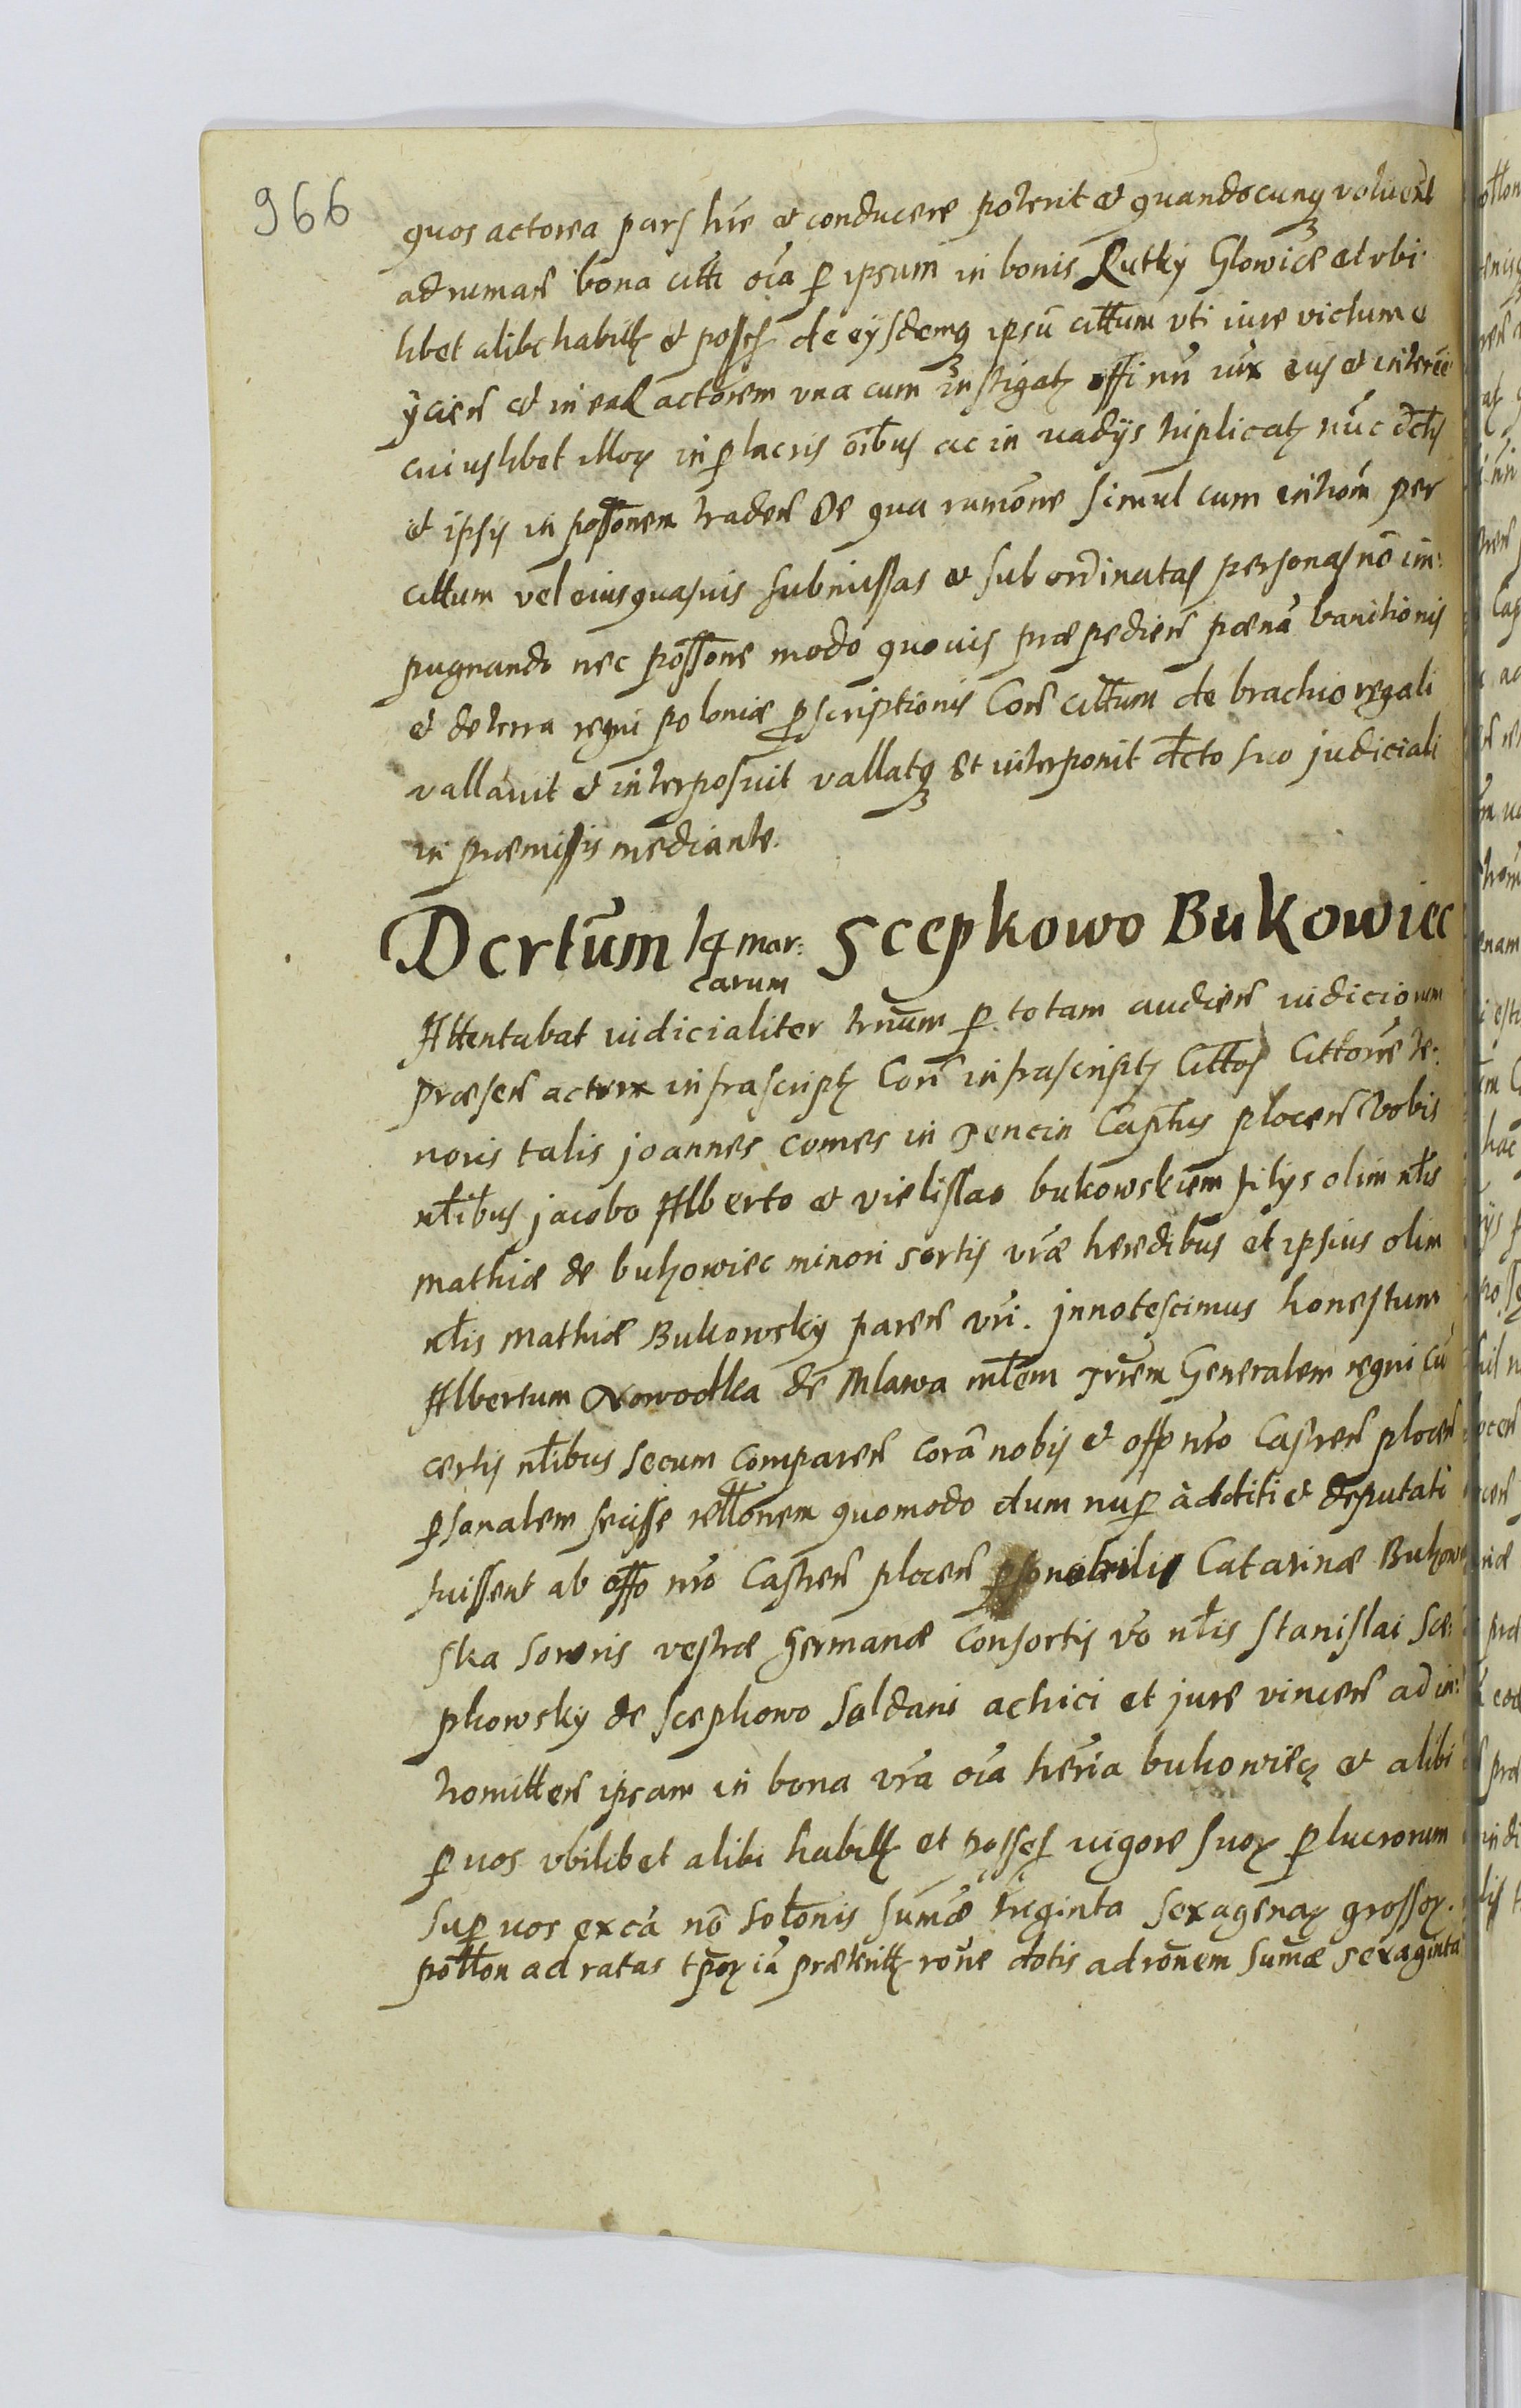 966
quos actorea pars hr̃e et conducere poterit et quandocunq; voluerit
ad rumare bona citti oĩa ꝑ ipsum in bonis Rutky Glowice et vbi
libet alibi habitt et posses de eysdemq; ipsũ cittum vti iure victum e
ycien et in eas actorem vna cum instigat offi nri iur eius et interee
cuiuslibet illor in ꝑ lucris oĩbus ac in vadijs triplicat nũc dctis
et ipsis in possonem traden De qua rumõne simul cum intrõm per
cittum vel eius quasuis submissas et subordinatas personas nõ im:
pugnando nec possone modo quouis præpedien pœnã banitionis
et de terra regni poloniæ ꝓscriptionis Con cittum de brachio regali
vallauit et interposuit vallatq; Et interponit dcto suo judiciali
in præmissis mediante.
Dcrtum 14 mar:
carum Scepkowo Bukowiec
Attentabat iudicialiter trnum ꝑ totam audien iudiciorum
præsen actum infrascript Con infrascript Cittos Cittone te:
noris talis joannes comes in Tencin Captus plocen Vobis
nlibus jacobo Alberto et vielislao bukowskiem filys olim nlis
Mathiæ de bukowiec minori sortis vræ heredibus et ipsius olim
nlis Mathiæ Bukowsky paren vri. jnnotescimus honestum
Albertum Nowodka de Mlawa mtem Trem Generalem regni cũ
certis nlibus secum comparen corã nobis et offo nro Castren plocen
ꝑsonalem fecisse rellonem quomodo dum nuꝑ additi et deputati
fuissent ab offo nro Castren plocen nobili Catarinæ Bukow
ska sororis vestræ germanæ consortis vo nlis Stanislai Sce:
pkowsky de Scepkowo Saldani achici et jure vincen ad in:
tromitten ipsam in bona vra oĩa hẽria bukowiec et alibi
ꝑ vos vbilibet alibi habitt et posses vigore suor ꝑ lucrorum
suꝑ vos ex cã nõ solonis sumæ triginta sexagenar grossor.
pollon ad ratas tpor iã præteritt rone dotis ad ronem sumæ sexaginta